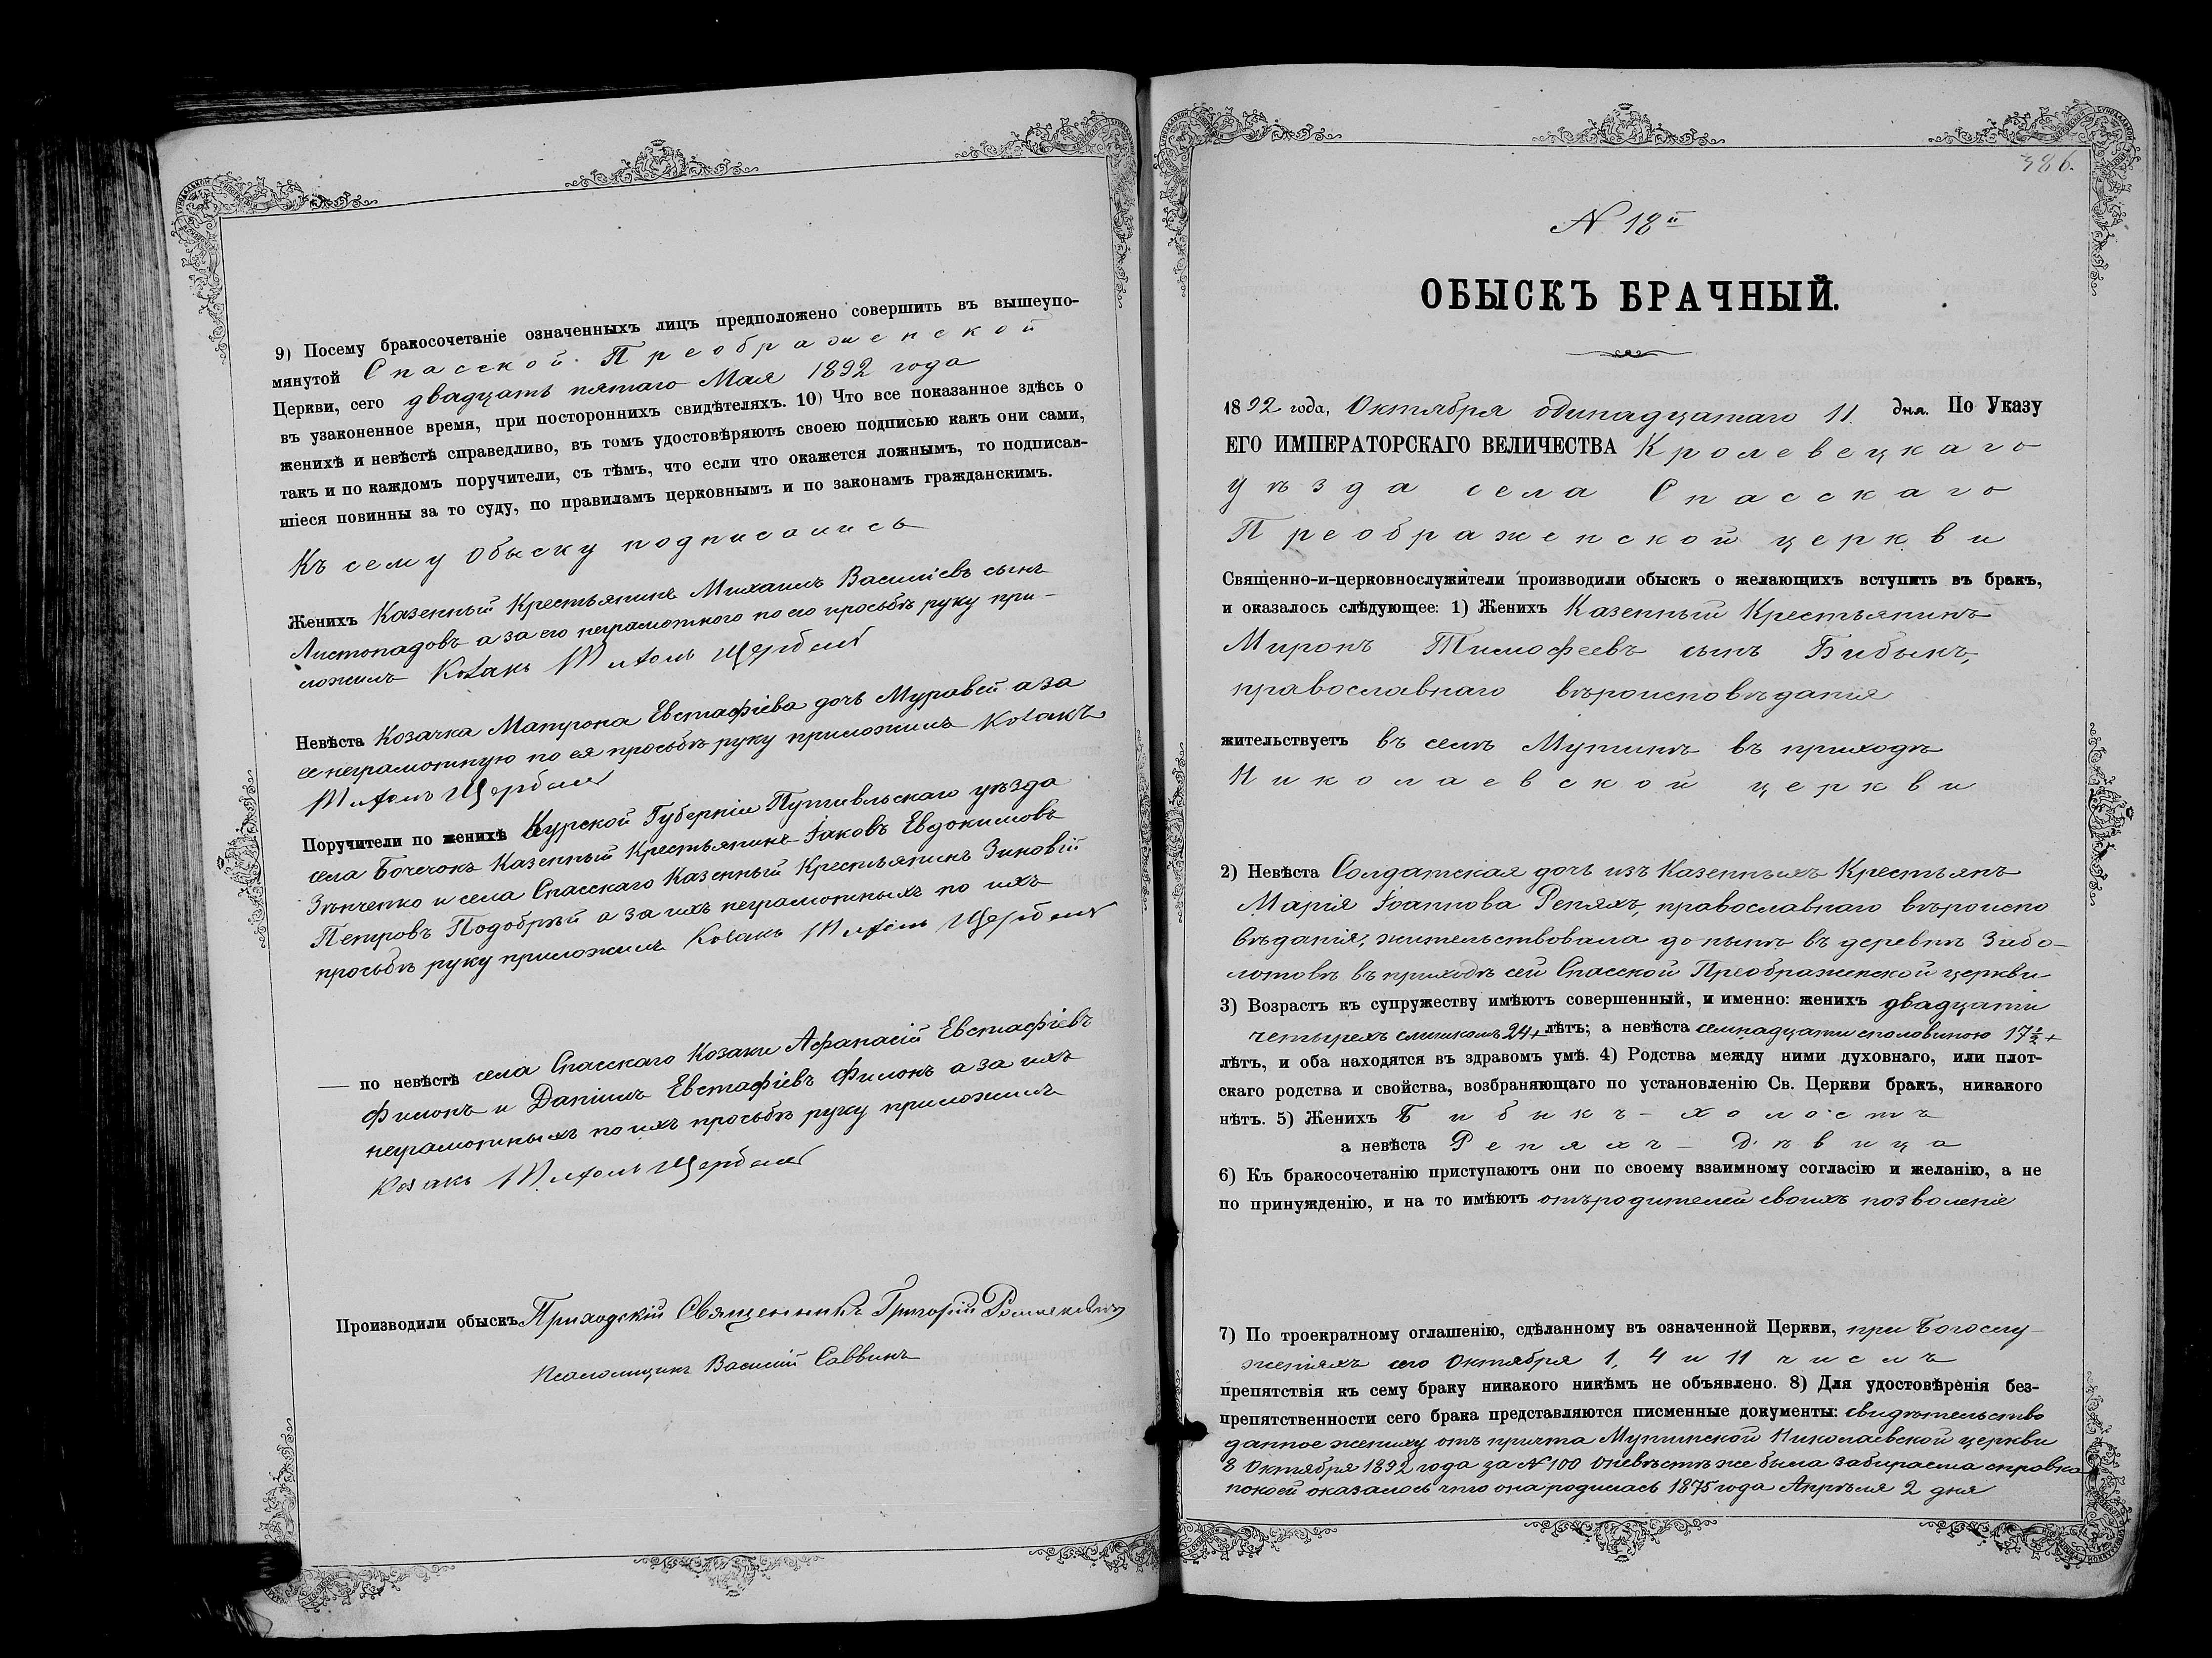 9) Посему бракосочетаніе означенныхъ лицъ предположено совершить въ вышеупо-
мянутой Спасской Преображенской
Церкви, сего двадцать пятаго Мая 1892 года
въ узаконенное время, при постороннихъ свидѣтеляхъ. 10) Что все показанное здѣсь о
женихѣ и невѣстѣ справедливо, въ томъ удостовѣряютъ своею подписью какъ они сами,
такъ и по каждомъ поручители, съ тѣмъ, что если что окажется ложнымъ, то подписав-
шіеся повинны за то суду, по правиламъ церковнымъ и по законамъ гражданскимъ.
Къ сему обыску подписались
Женихъ Казенный Крестьянинъ Михаилъ Василіевъ сынъ
Листопадовъ а за его неграмотного по его просьбѣ руку при-
ложилъ Козакъ Щербакъ
Невѣста Козачка Матрона Евстафіева дочь Муравей а за
ее неграмотную по ея просьбѣ руку приложилъ Козакъ
Щербакъ
Поручители по женихѣ Курской Губерніи Путивльскаго уѣзда
села Бочечокъ Казенный Крестьянинъ Іаковъ Евдокимовъ
Зѣнченко и села Спасскаго Казенный Крестьянинъ Зиновій
Петровъ Подобрѣй а за ихъ неграмотныхъ по ихъ
просьбѣ руку приложилъ Козакъ Щербакъ
— по невѣстѣ села Спасскаго Козаки Афанасій Евстафіевъ
Филонъ и Даніилъ Евстафіевъ Филонъ а за ихъ
неграмотныхъ по ихъ просьбѣ руку приложилъ
Козакъ Щербакъ
Производили обыскъ Приходскій Священникъ Григорій
Псаломщикъ Василій Саввинъ
386.
N 18й
ОБЫСКЪ БРАЧНЫЙ.
1892 года, Октября одинадцатаго 11. дня. По Указу
ЕГО ИМПЕРАТОРСКАГО ВЕЛИЧЕСТВА Кролевецкаго
Уѣзда села Спасскаго
Преображенской церкви
Священно-и-церковнослужители производили обыскъ о желающихъ вступить въ бракъ,
и оказалось слѣдующее: 1) Женихъ Казенный Крестьянинъ
Миронъ Тимофеевъ сынъ Бибыкъ,
православнаго вѣроисповѣданія
жительствуетъ въ селѣ Мутинѣ въ приходѣ
Николаевской церкви
2) Невѣста Солдатская дочь изъ Казенныхъ Крестьянъ
Марія Іоаннова Репяхъ, православнаго вѣроиспо
вѣданія, жительствовала до нынѣ въ деревнѣ Забо-
лотовѣ въ приходѣ сей Спасской Преображенской церкви
3) Возрастъ къ супружеству имѣютъ совершенный, и именно: женихъ двадцати
четырехъ слишкомъ 24+ лѣтъ; а невѣста семнадцати споловиною 17½+
лѣтъ, и оба находятся въ здравомъ умѣ. 4) Родства между ними духовнаго, или плот-
скаго родства и свойства, возбраняющаго по установленію Св. Церкви бракъ, никакого
нѣтъ. 5) Женихъ Бибикъ - холостъ
а невѣста Репяхъ - Дѣвица
6) Къ бракосочетанію приступаютъ они по своему взаимному согласію и желанію, а не
по принужденію, и на то имѣютъ отъ родителей своихъ позволеніе
7) По троекратному оглашенію, сдѣланному въ означенной Церкви, при Богослу-
женіяхъ сего Октября 1, 4 и 11 числъ
препятствія къ сему браку никакого никѣмъ не объявлено. 8) Для удостовѣренія без-
препятственности сего брака представляются писменные документы: свидѣтельство
данное жениху отъ причта Мутинской Николаевской церкви
8 Октября 1892 года за N 100 О невѣстѣ же была забираема справка
по коей оказалось что она родилась 1875 года Апрѣля 2 дня